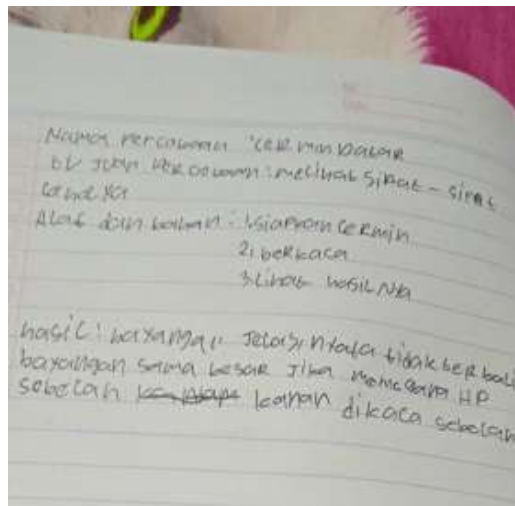 Nama Percobaan : cermin Datar
tujuan Percobaan : melihat Sifat - Sifat
cahaya
Alat dan bahan : 1. siapkan cermin
2. berkaca
3. Lihat hasilnya
hasil : bayangan Jelas, nyata tidak berbali
bayangan sama besar Jika memegang HP
sebelah kanan dikaca sebelah